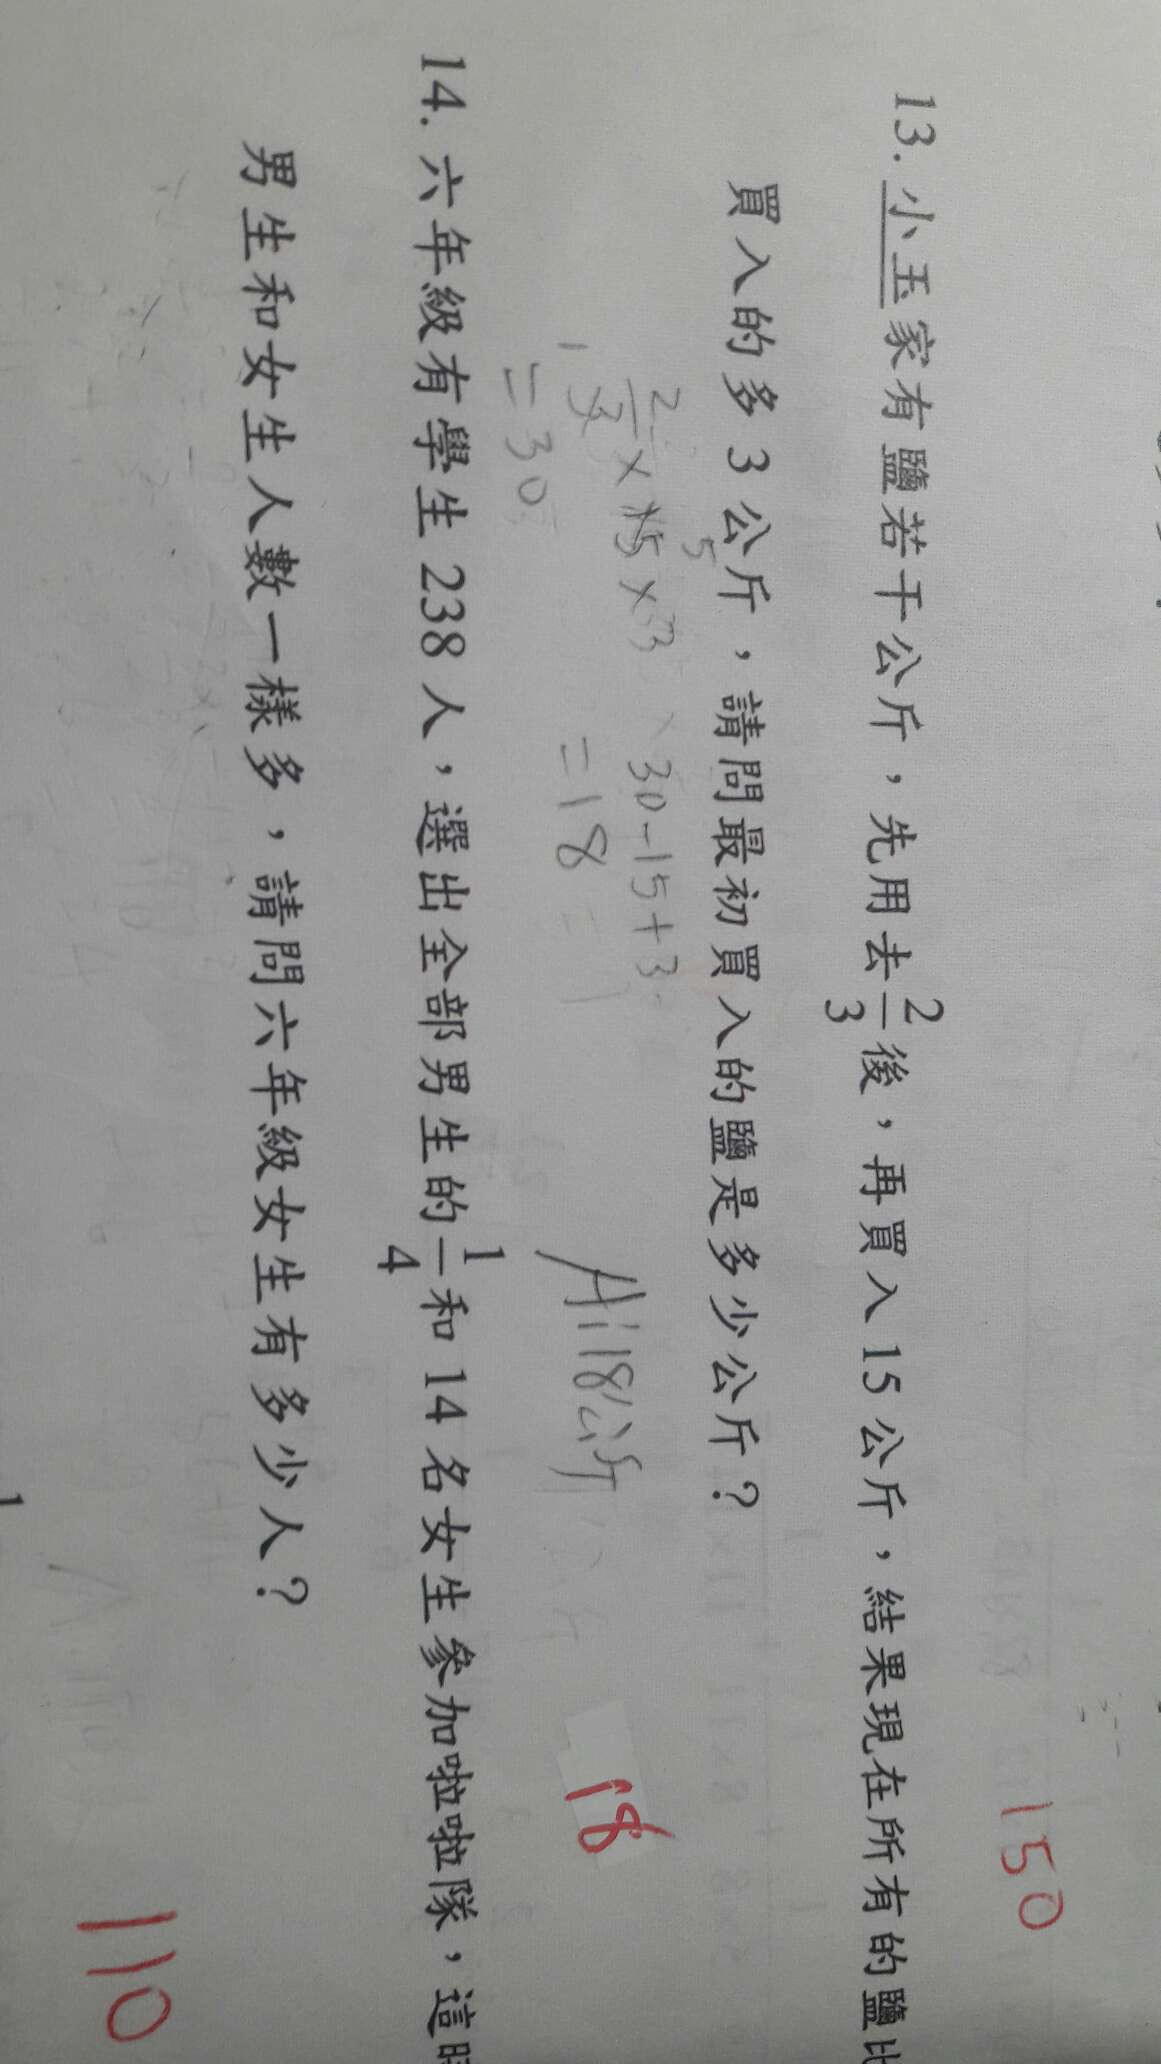 150
13. 小玉家有鹽若干公斤，先用去2/3後，再買入15公斤，結果現在所有的鹽比
買入的多3公斤，請問最初買入的鹽是多少公斤？
30-15+3
=18
=30
A:18公斤
18
14. 六年級有學生238人，選出全部男生的1/4和14名女生參加啦啦隊，這時
男生和女生人數一樣多，請問六年級女生有多少人？
110
1